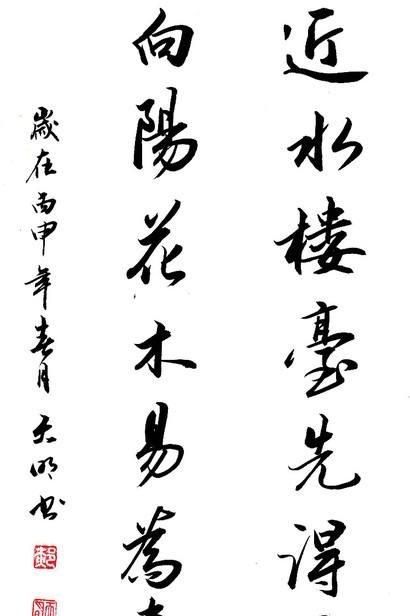 近水楼臺先得
向陽花木易為
歲在丙申年春月天明书